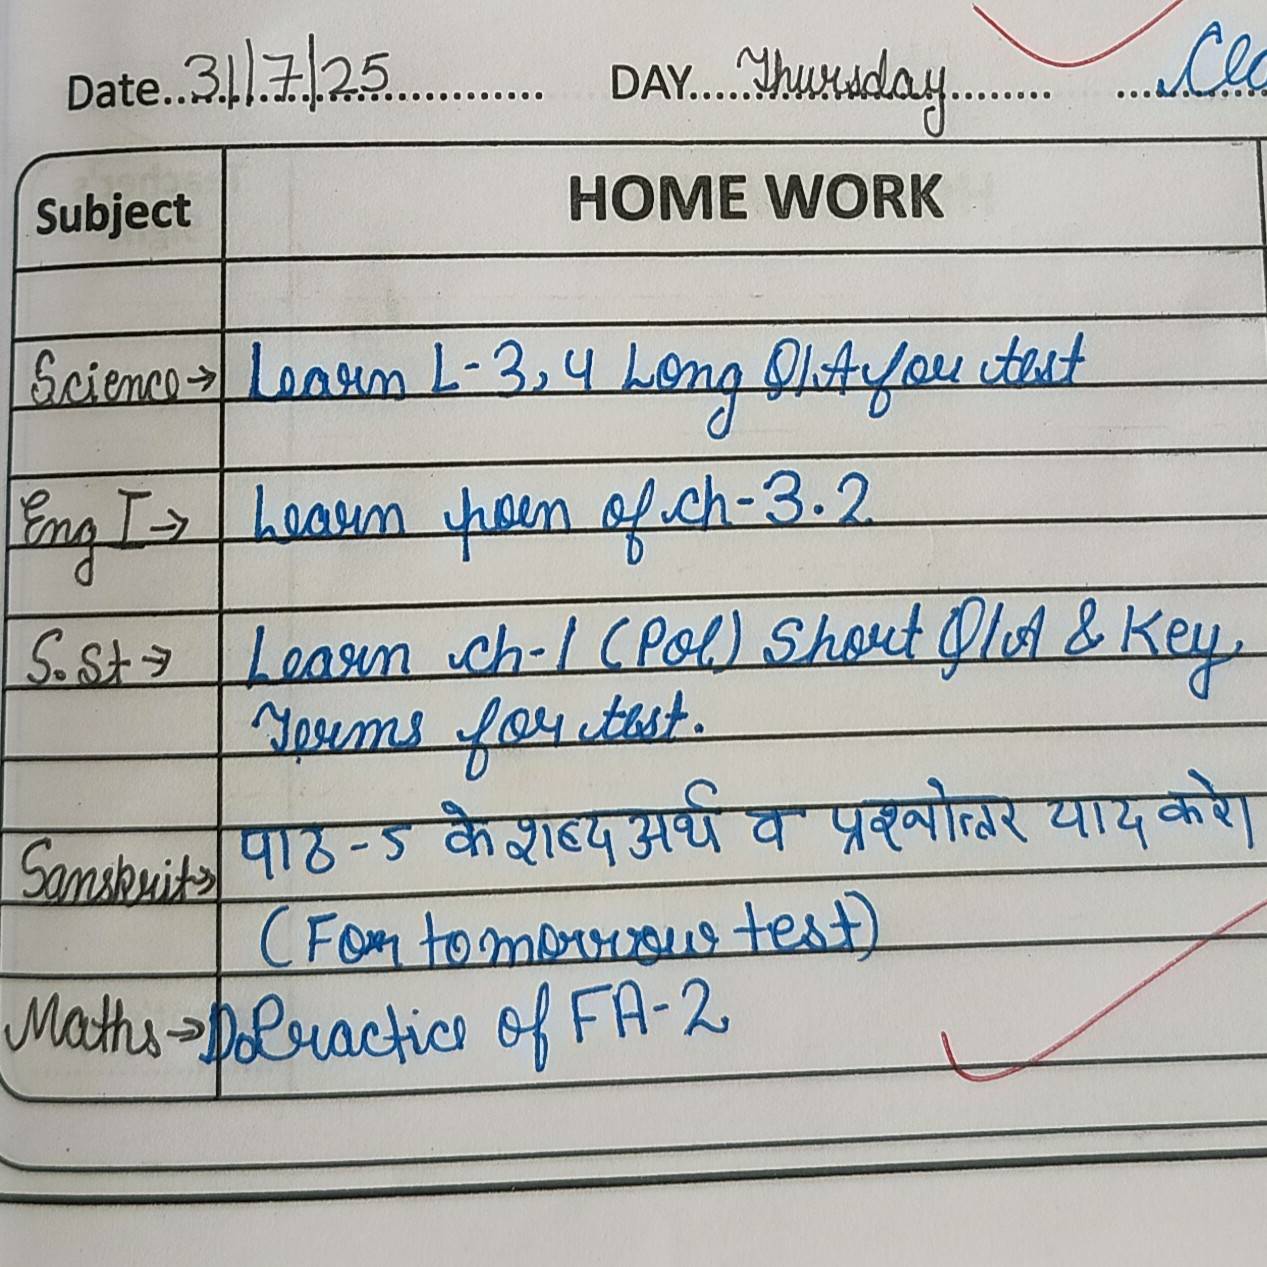 Date..31/7/25.............. DAY.....Thursday........
Subject HOME WORK
Science→ Learn L-3,4 Long Q/A for test
Eng I→ Learn poem of ch-3.2
S.St→ Learn ch-1 (Pol) Short Q/A & Key
Terms for test.
Sanskrit→ पाठ-5 के शब्द अर्थ व प्रश्नोत्तर याद करो
(For tomorrow test)
Maths→ Do Practice of FA-2